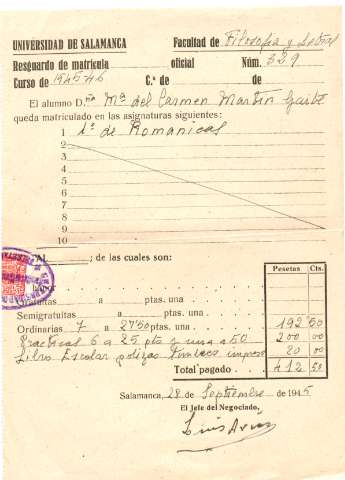 UNIVERSIDAD DE SALAMANCA
Facultad de Filosofía y Letras
Resguardo de matrícula oficial Núm. 329
Curso de 1945-46 C.º de de
El alumno D.ña Mª del Carmen Martín Gaite
queda matriculado en las asignaturas siguientes:
1 1º de Románicas
2
3
4
5
6
7
8
9
10
; de las cuales son:
Pesetas Cts.
Gratuitas a ptas. una
Semigratuitas a ptas. una
Ordinarias 7 a 27'50 ptas. una 192 50
Practicas 6 a 25 pts y una a 50 200 00
Libro Escolar polizas timbres impreso 20 00
Total pagado 412 50
Salamanca, 28 de Septiembre de 1945
El Jefe del Negociado,
Luis